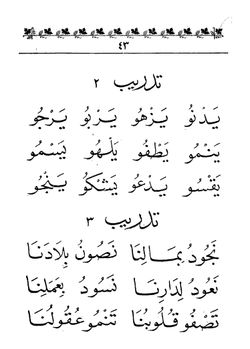 ٤٣
تدريب ٢
يَدْنُو يَزْهُو يَرْبُو يَرْجُو
يَنْمُو يَطْفُو يَلْهُو يَسْمُو
يَقْسُو يَدْعُو يَشْكُو يَنْجُو
تدريب ٣
نَجُودُ بِمَالِنَا نَصُونُ بِلَادَنَا
نَعُودُ لِدَارِنَا نَسُودُ بِعَمَلِنَا
تَصْفُو قُلُوبُنَا تَنْمُو عُقُولُنَا